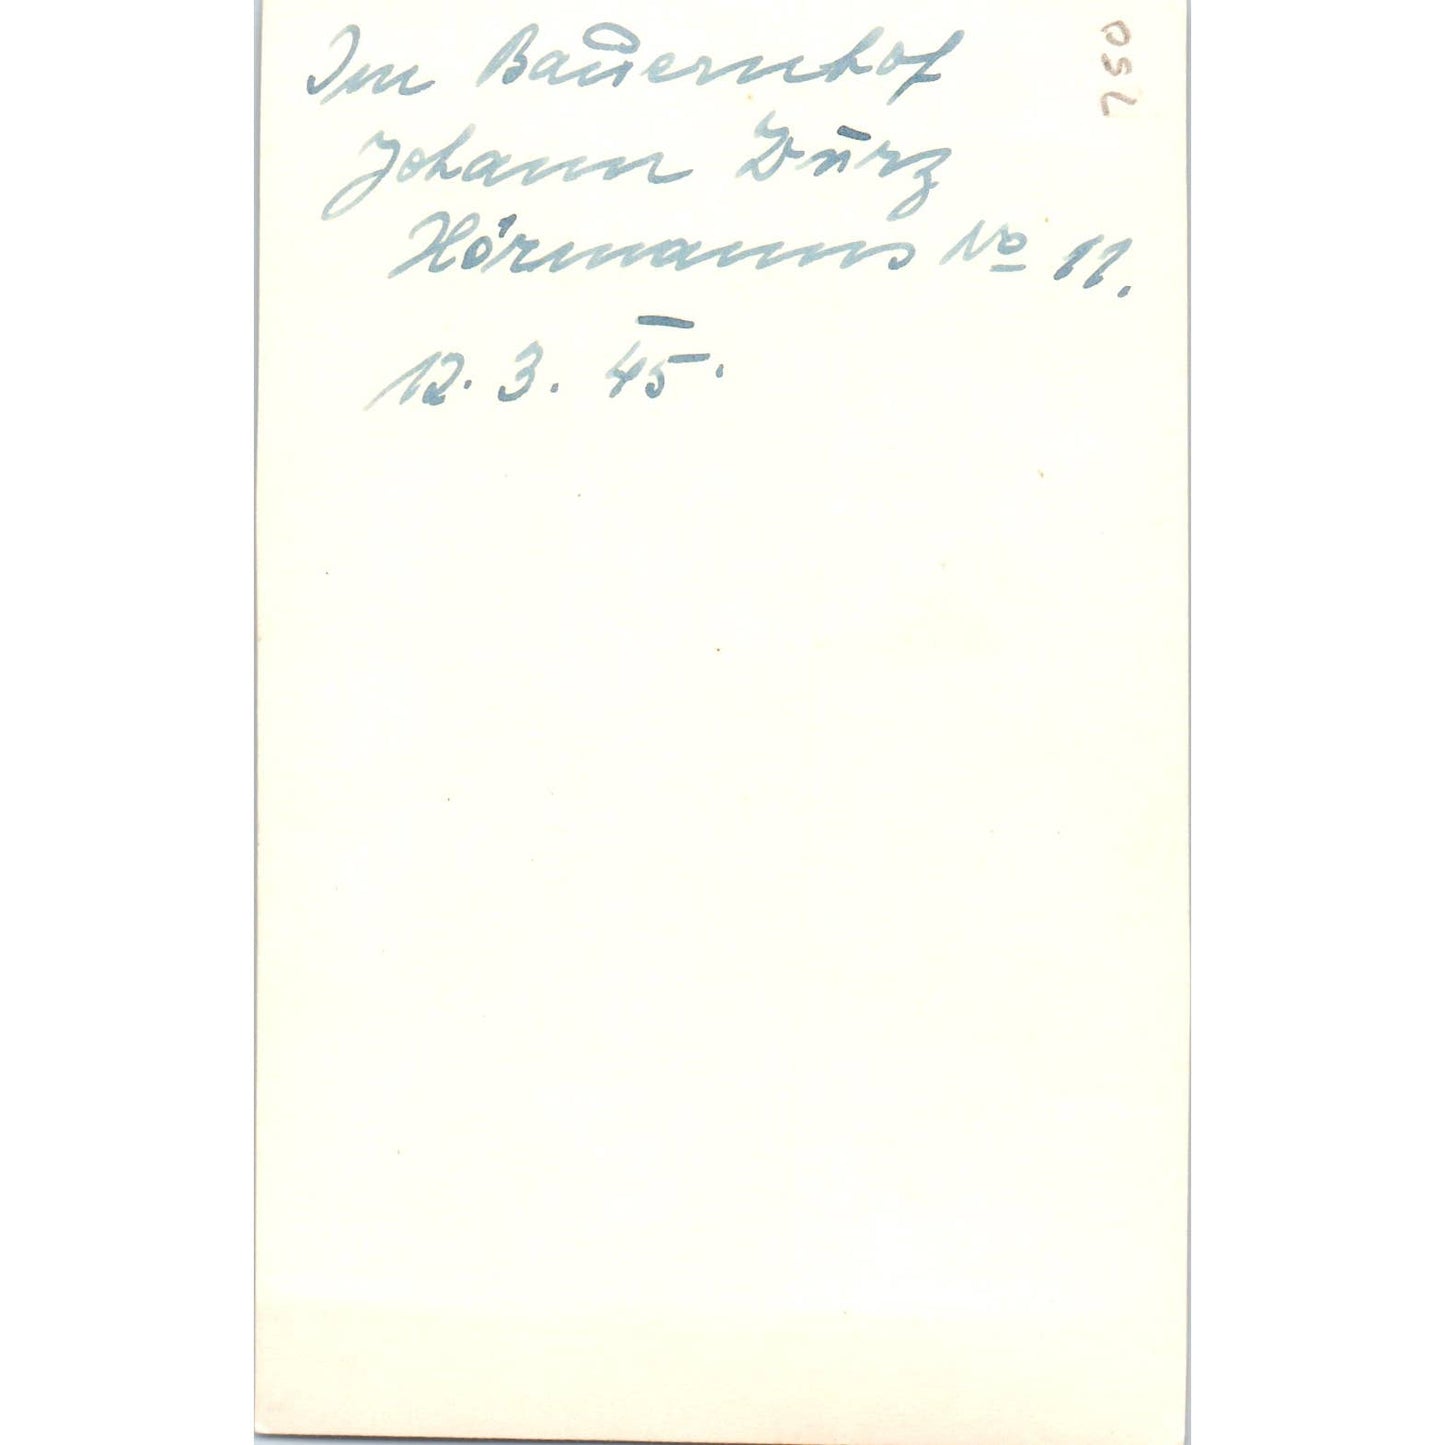 Im Bauernhof
Johann Dürz
Hörmanns No 11.
12. 3. 45.
750